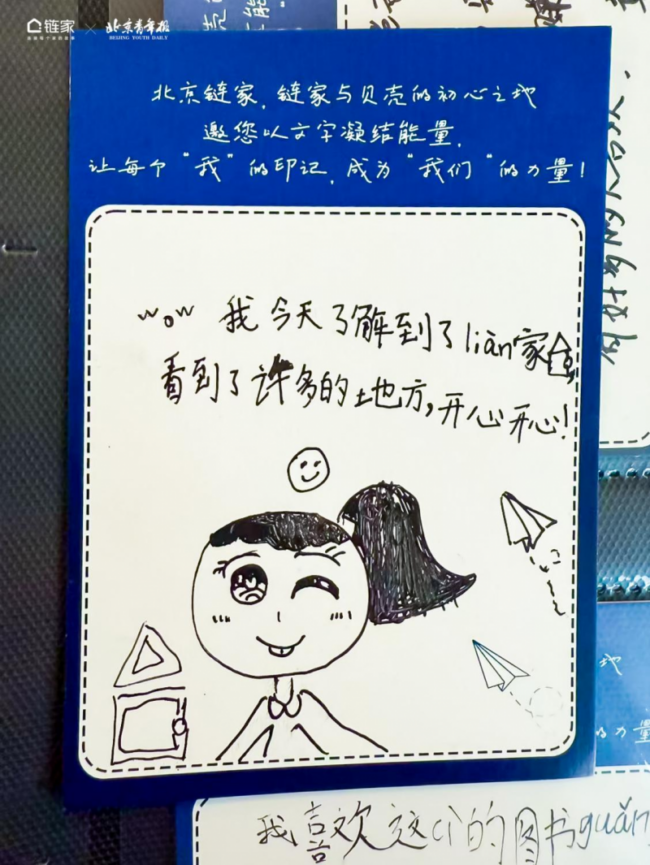 链家 × 北京青年报
BEIJING YOUTH DAILY
北京链家，链家与贝壳的初心之地
邀您以文字凝结能量，
让每个“我”的印记，成为“我们”的力量！
wow 我今天了解到了liàn家
看到了许多的地方，开心开心！
之地
的力量
我喜欢这个的图书guǎn